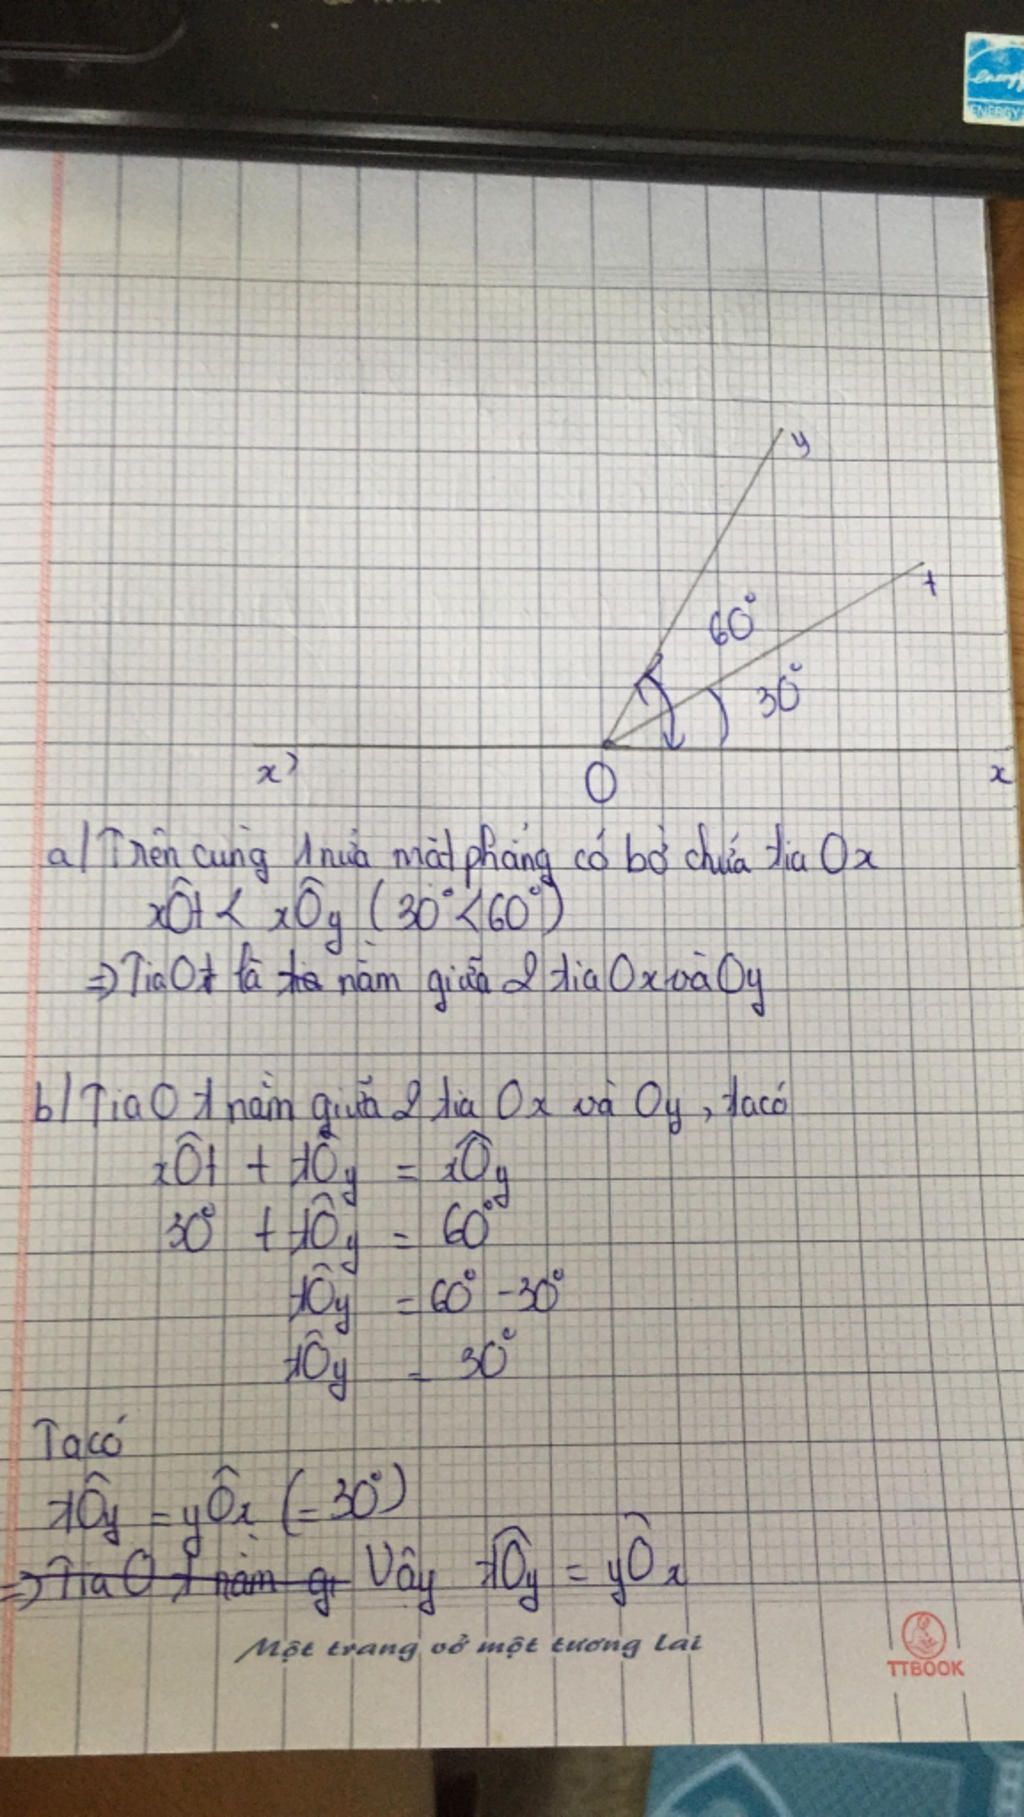 energy
ENERGY
y
t
60°
30°
x'
O
x
a/ Trên cùng 1 nửa mặt phẳng có bờ chứa tia Ox
xÔt < xÔy (30° < 60°)
=> Tia Ot là tia nằm giữa 2 tia Ox và Oy
b/ Tia Ot nằm giữa 2 tia Ox và Oy, ta có
xÔt + tÔy = xÔy
30° + tÔy = 60°
tÔy = 60° - 30°
tÔy = 30°
Ta có
tÔy = yÔx (= 30°)
=> Tia Ot nằm gi Vậy tÔy = yÔx
Một trang vở một tương lai
TTBOOK